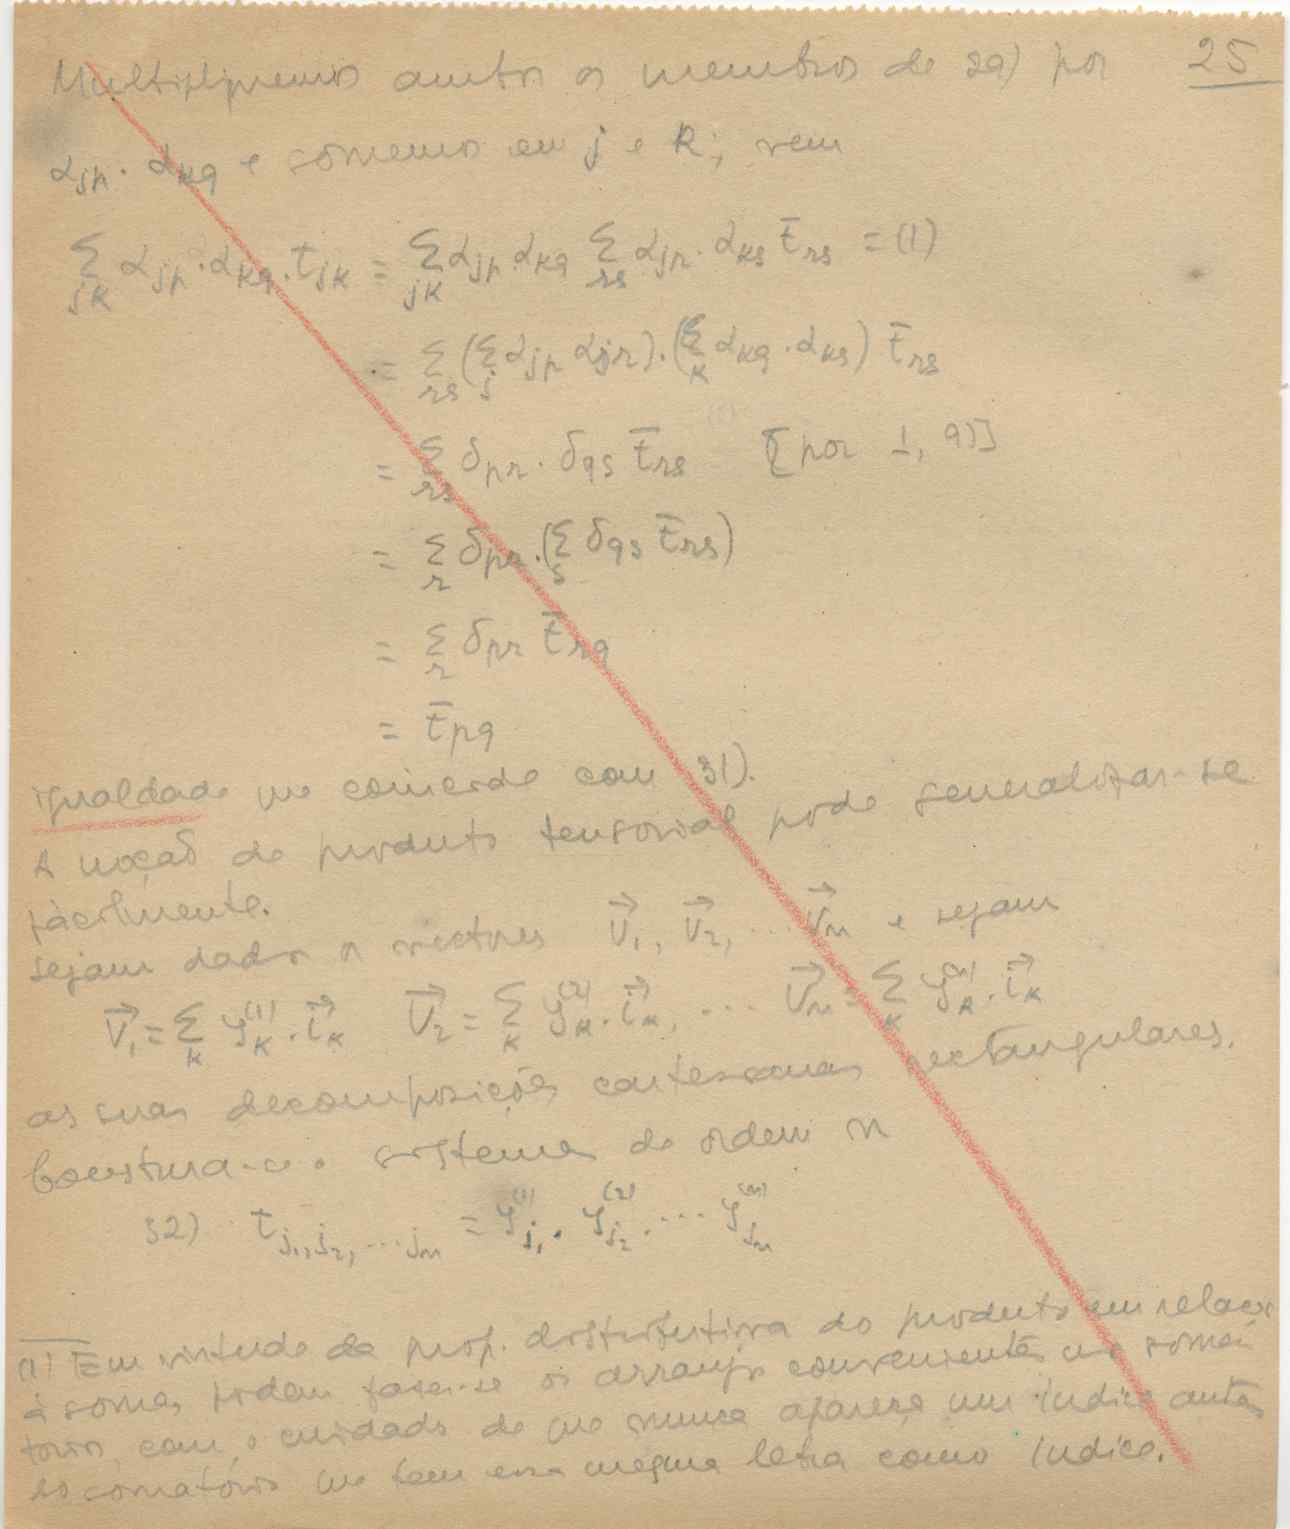 Multipliquemos ambos os membros de 29) por 25
α_jp · α_kq e somemos em j e k; vem
Σ_jk α_jp · α_kq · t_jk = Σ_jk α_jp α_kq Σ_rs α_jr · α_ks t̄_rs = (1)
= Σ_rs (Σ_j α_jp α_jr) · (Σ_k α_kq · α_ks) t̄_rs
= Σ_rs δ_pr · δ_qs t̄_rs [por 1, 9)]
= Σ_r δ_pr · (Σ_s δ_qs t̄_rs)
= Σ_r δ_pr t̄_rq
= t̄_pq
igualdade que coincide com 31).
A noção de produto tensorial pode generalizar-se
fàcilmente.
Sejam dados os vectores V⃗_1, V⃗_2, ... V⃗_n e sejam
V⃗_1 = Σ_k y_k^(1) · i⃗_k V⃗_2 = Σ_k y_k^(2) · i⃗_k, ... V⃗_n = Σ_k y_k^(n) · i⃗_k
as suas decomposições cartesianas rectangulares.
Construa-se o sistema de ordem n
32) t_j1,j2,...jn = y_j1^(1) · y_j2^(2) · ... y_jn^(n)
(1) Em virtude da prop. distributiva do produto em relação
à soma, podem fazer-se os arranjos convenientes nos soma-
torios, com o cuidado de que nunca apareça um índice antes
do somatório que tem essa mesma letra como índice.